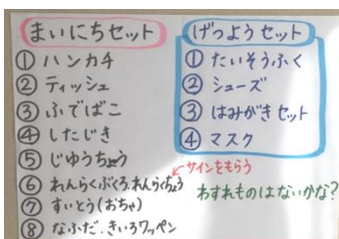 まいにちセット
① ハンカチ
② ティッシュ
③ ふでばこ
④ したじき
⑤ じゆうちょう
⑥ れんらくぶくろ、れんらくちょう
⑦ すいとう(おちゃ)
⑧ なふだ、きいろワッペン
げつようセット
① たいそうふく
② シューズ
③ はみがきセット
④ マスク
サインをもらう
わすれものはないかな?